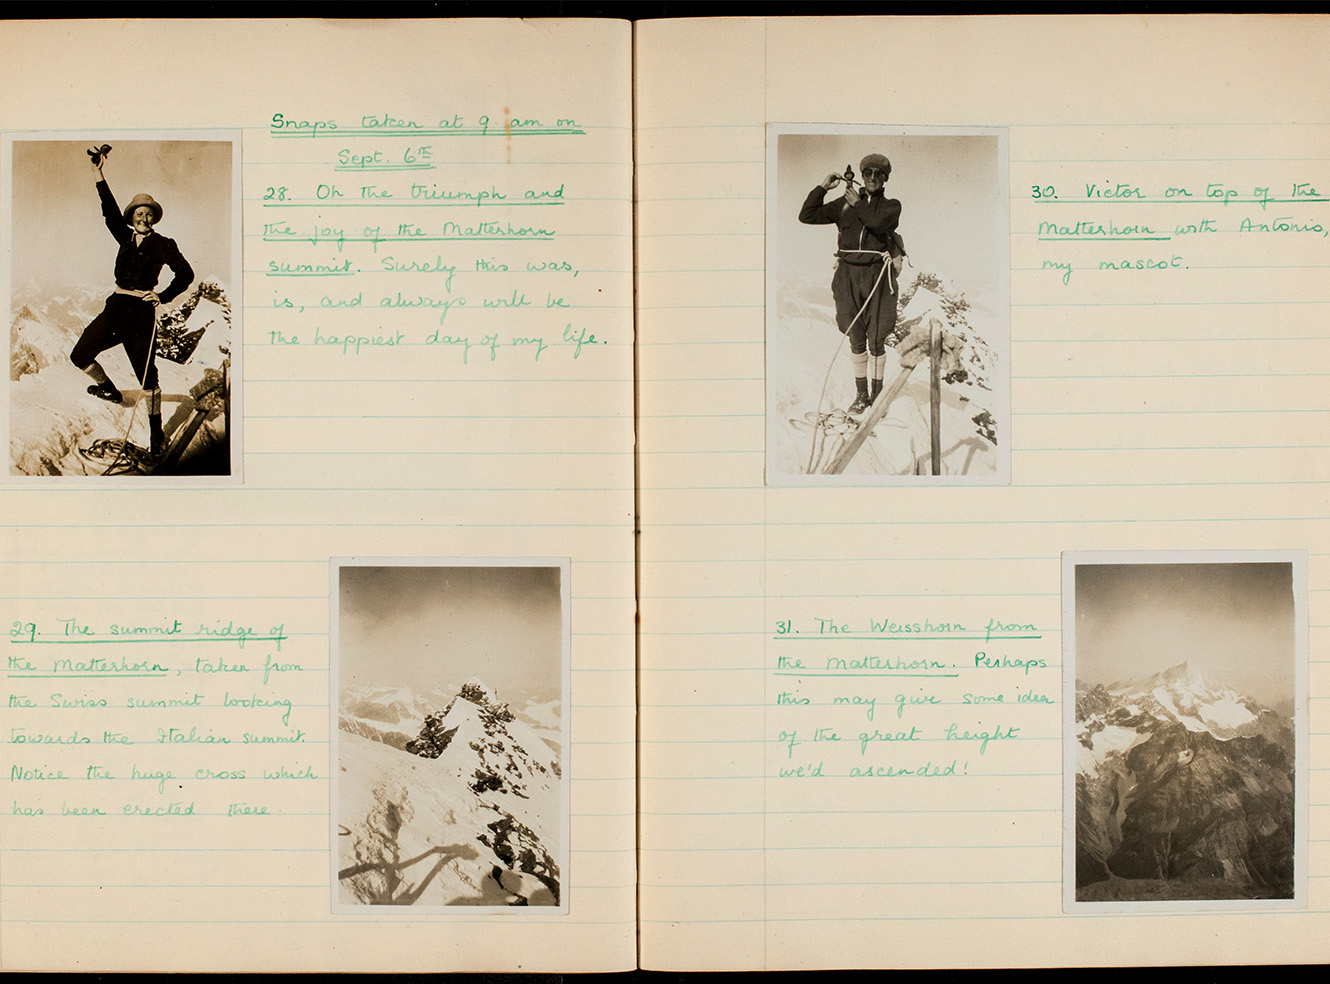 Snaps taken at 9 am on
Sept. 6th
28. Oh the triumph and
the joy of the Matterhorn
summit. Surely this was,
is, and always will be
the happiest day of my life.
29. The summit ridge of
the Matterhorn, taken from
the Swiss summit looking
towards the Italian summit.
Notice the huge cross which
has been erected there.
30. Victor on top of the
Matterhorn with Antonio,
my mascot.
31. The Weisshorn from
the Matterhorn. Perhaps
this may give some idea
of the great height
we'd ascended!